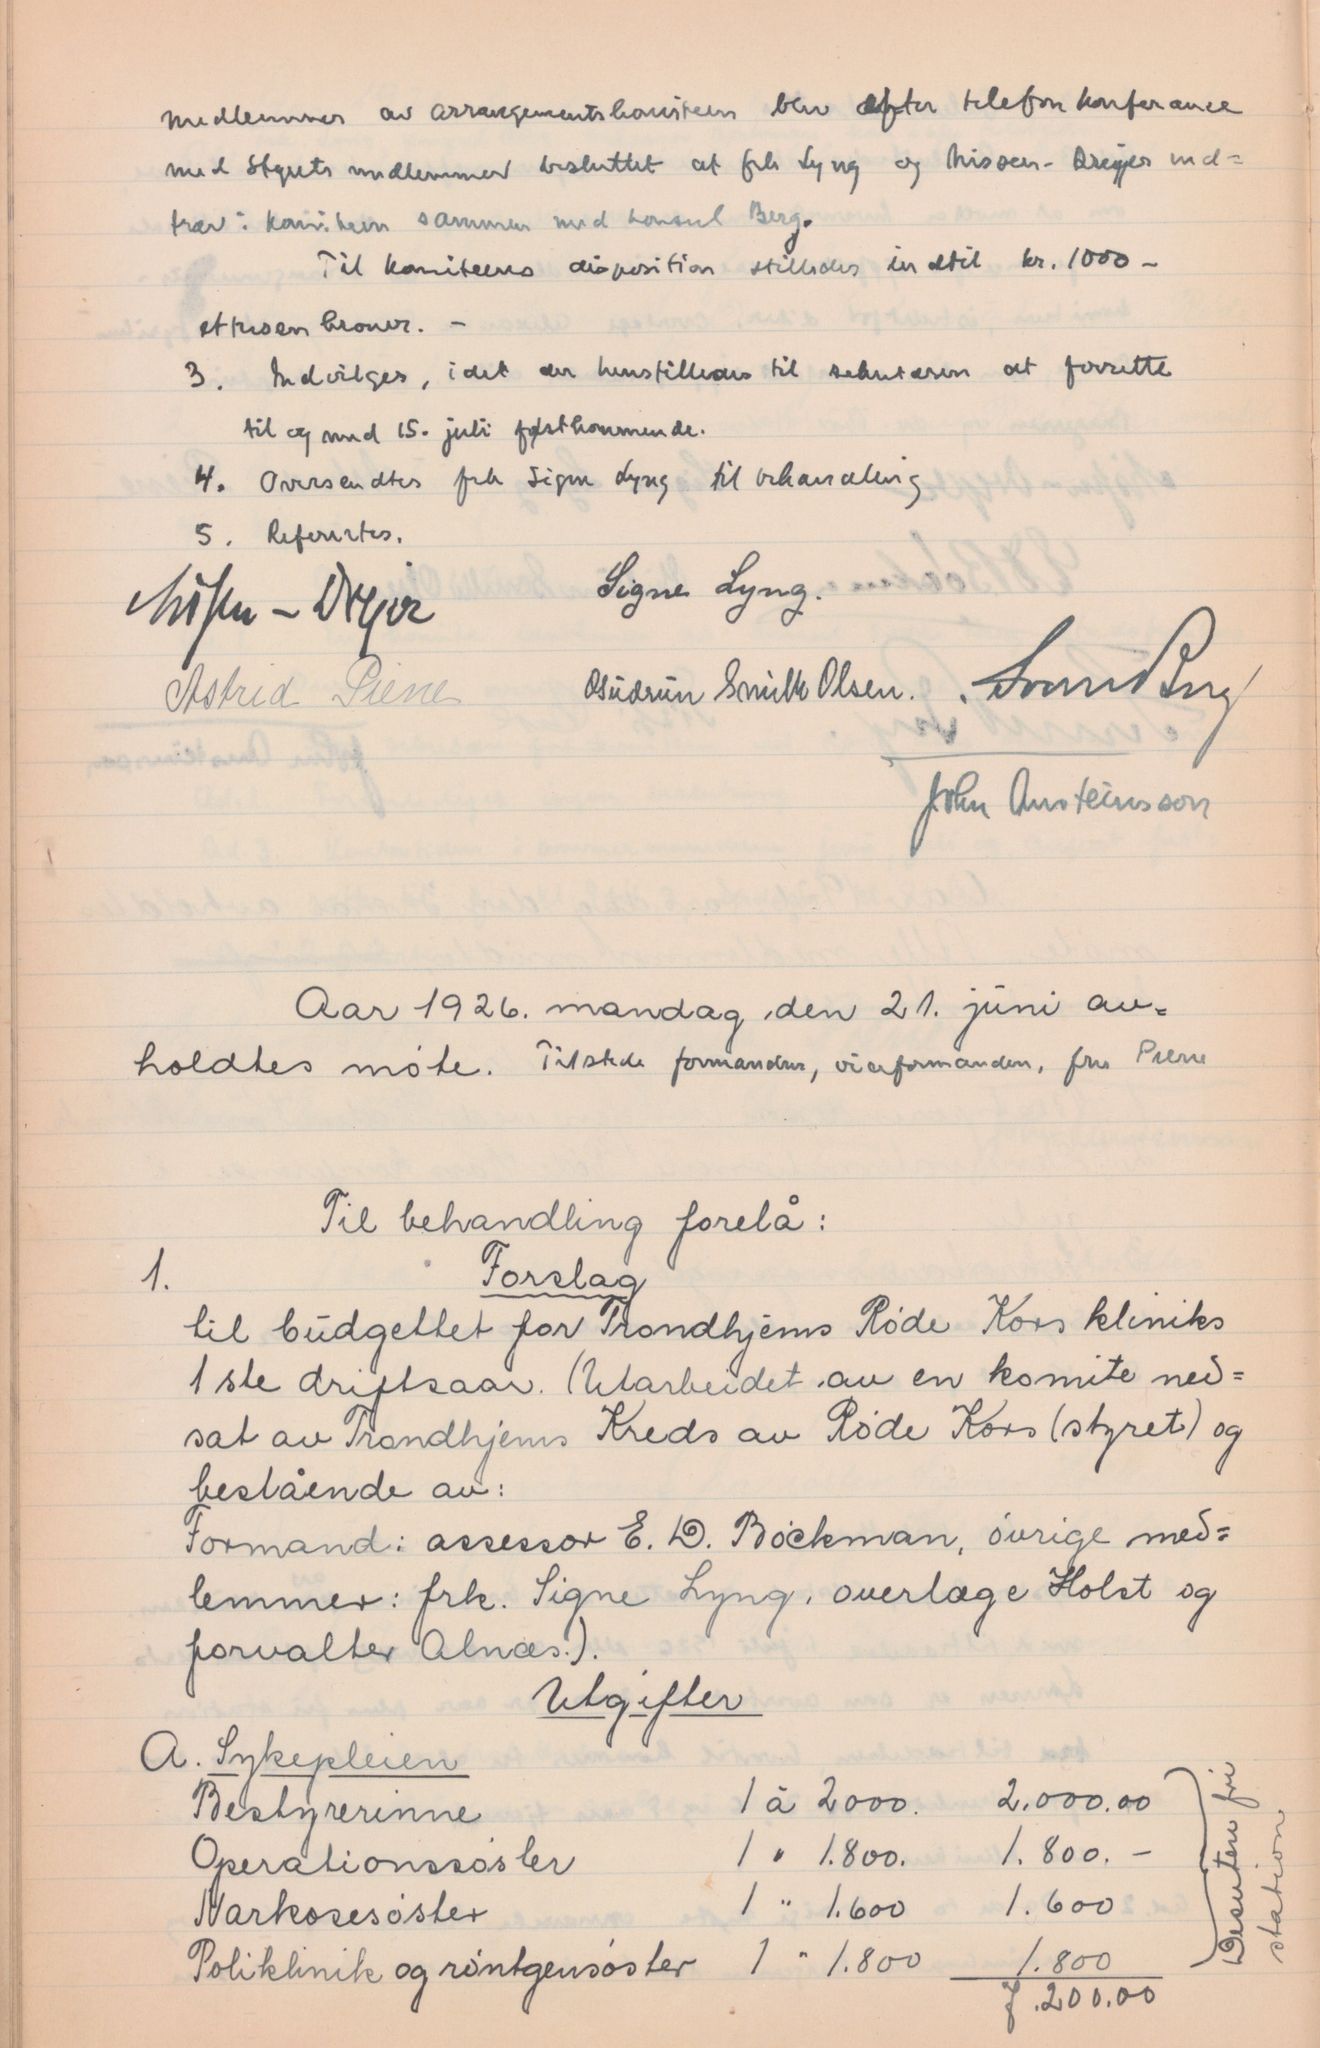 medlemmer av arrangementskomiteen blev efter telefonkonferance
med styrets medlemmer besluttet at frk Lyng og Nissen-Dreyer ind=
træv i komiteen sammen med konsul Berg.
Til komiteens disposition stilledes indtil kr. 1000 –
ettusen kroner. –
3. Indvilges, idet der henstilledes til sekretæren at forrette
til og med 15. juli førstkommende.
4. Oversendtes frk Signe Lyng til behandling
5. Refertes.
Nissen-Dreyer Signe Lyng.
Astrid Piene Gudrun Smith Olsen. Berg
John Austeinsson
Aar 1926. mandag den 21. juni av=
holdtes møte. Tilstede formanden, viceformanden, fru Piene
Til behandling forelå:
1. Forslag
til budgettet for Trondhjems Røde Kors kliniks
1ste driftsaar. (Utarbeidet av en komite ned=
sat av Trondhjems Kreds av Røde Kors (styret) og
bestående av:
Formand: assessor E. D. Bøckman, øvrige med=
lemmer: frk. Signe Lyng, overlæge Holst og
forvalter Alnæs.).
Utgifter
A. Sykepleien
Bestyrerinne 1 à 2000. 2.000.00
Operationssøster 1 " 1.800. 1.800. –
Narkosesøster 1 " 1.600 1.600
Poliklinik og røntgensøster 1 " 1.800 1.800
7.200.00
Desuten fri
station